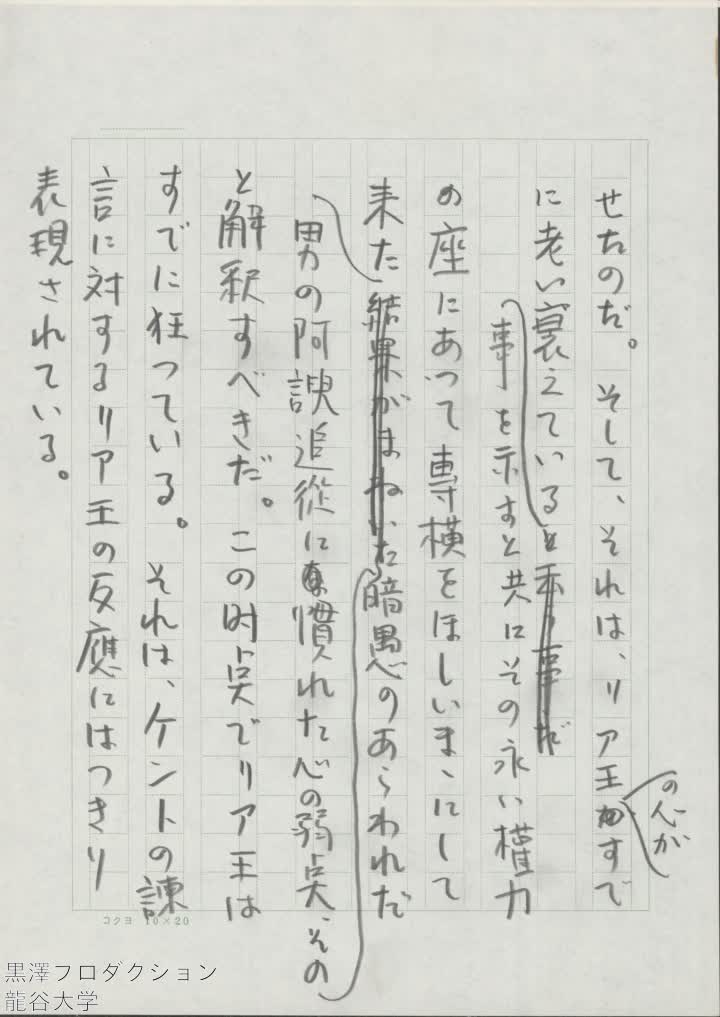 せたのだ。そして、それは、リア王がすで
の心が
に老い衰えていると云う事だ
事を示すと共にその永い權力
の座にあって専横をほしいまゝにして
来た結果がまねいた暗愚のあらわれだ
男の阿諛追從に慣れた心の弱点、その
と解釈すべきだ。この时点でリア王は
すでに狂っている。それは、ケントの諫
言に対するリア王の反應にはつきり
表現されている。
コクヨ 10×20
黒澤フロダクション
龍谷大学